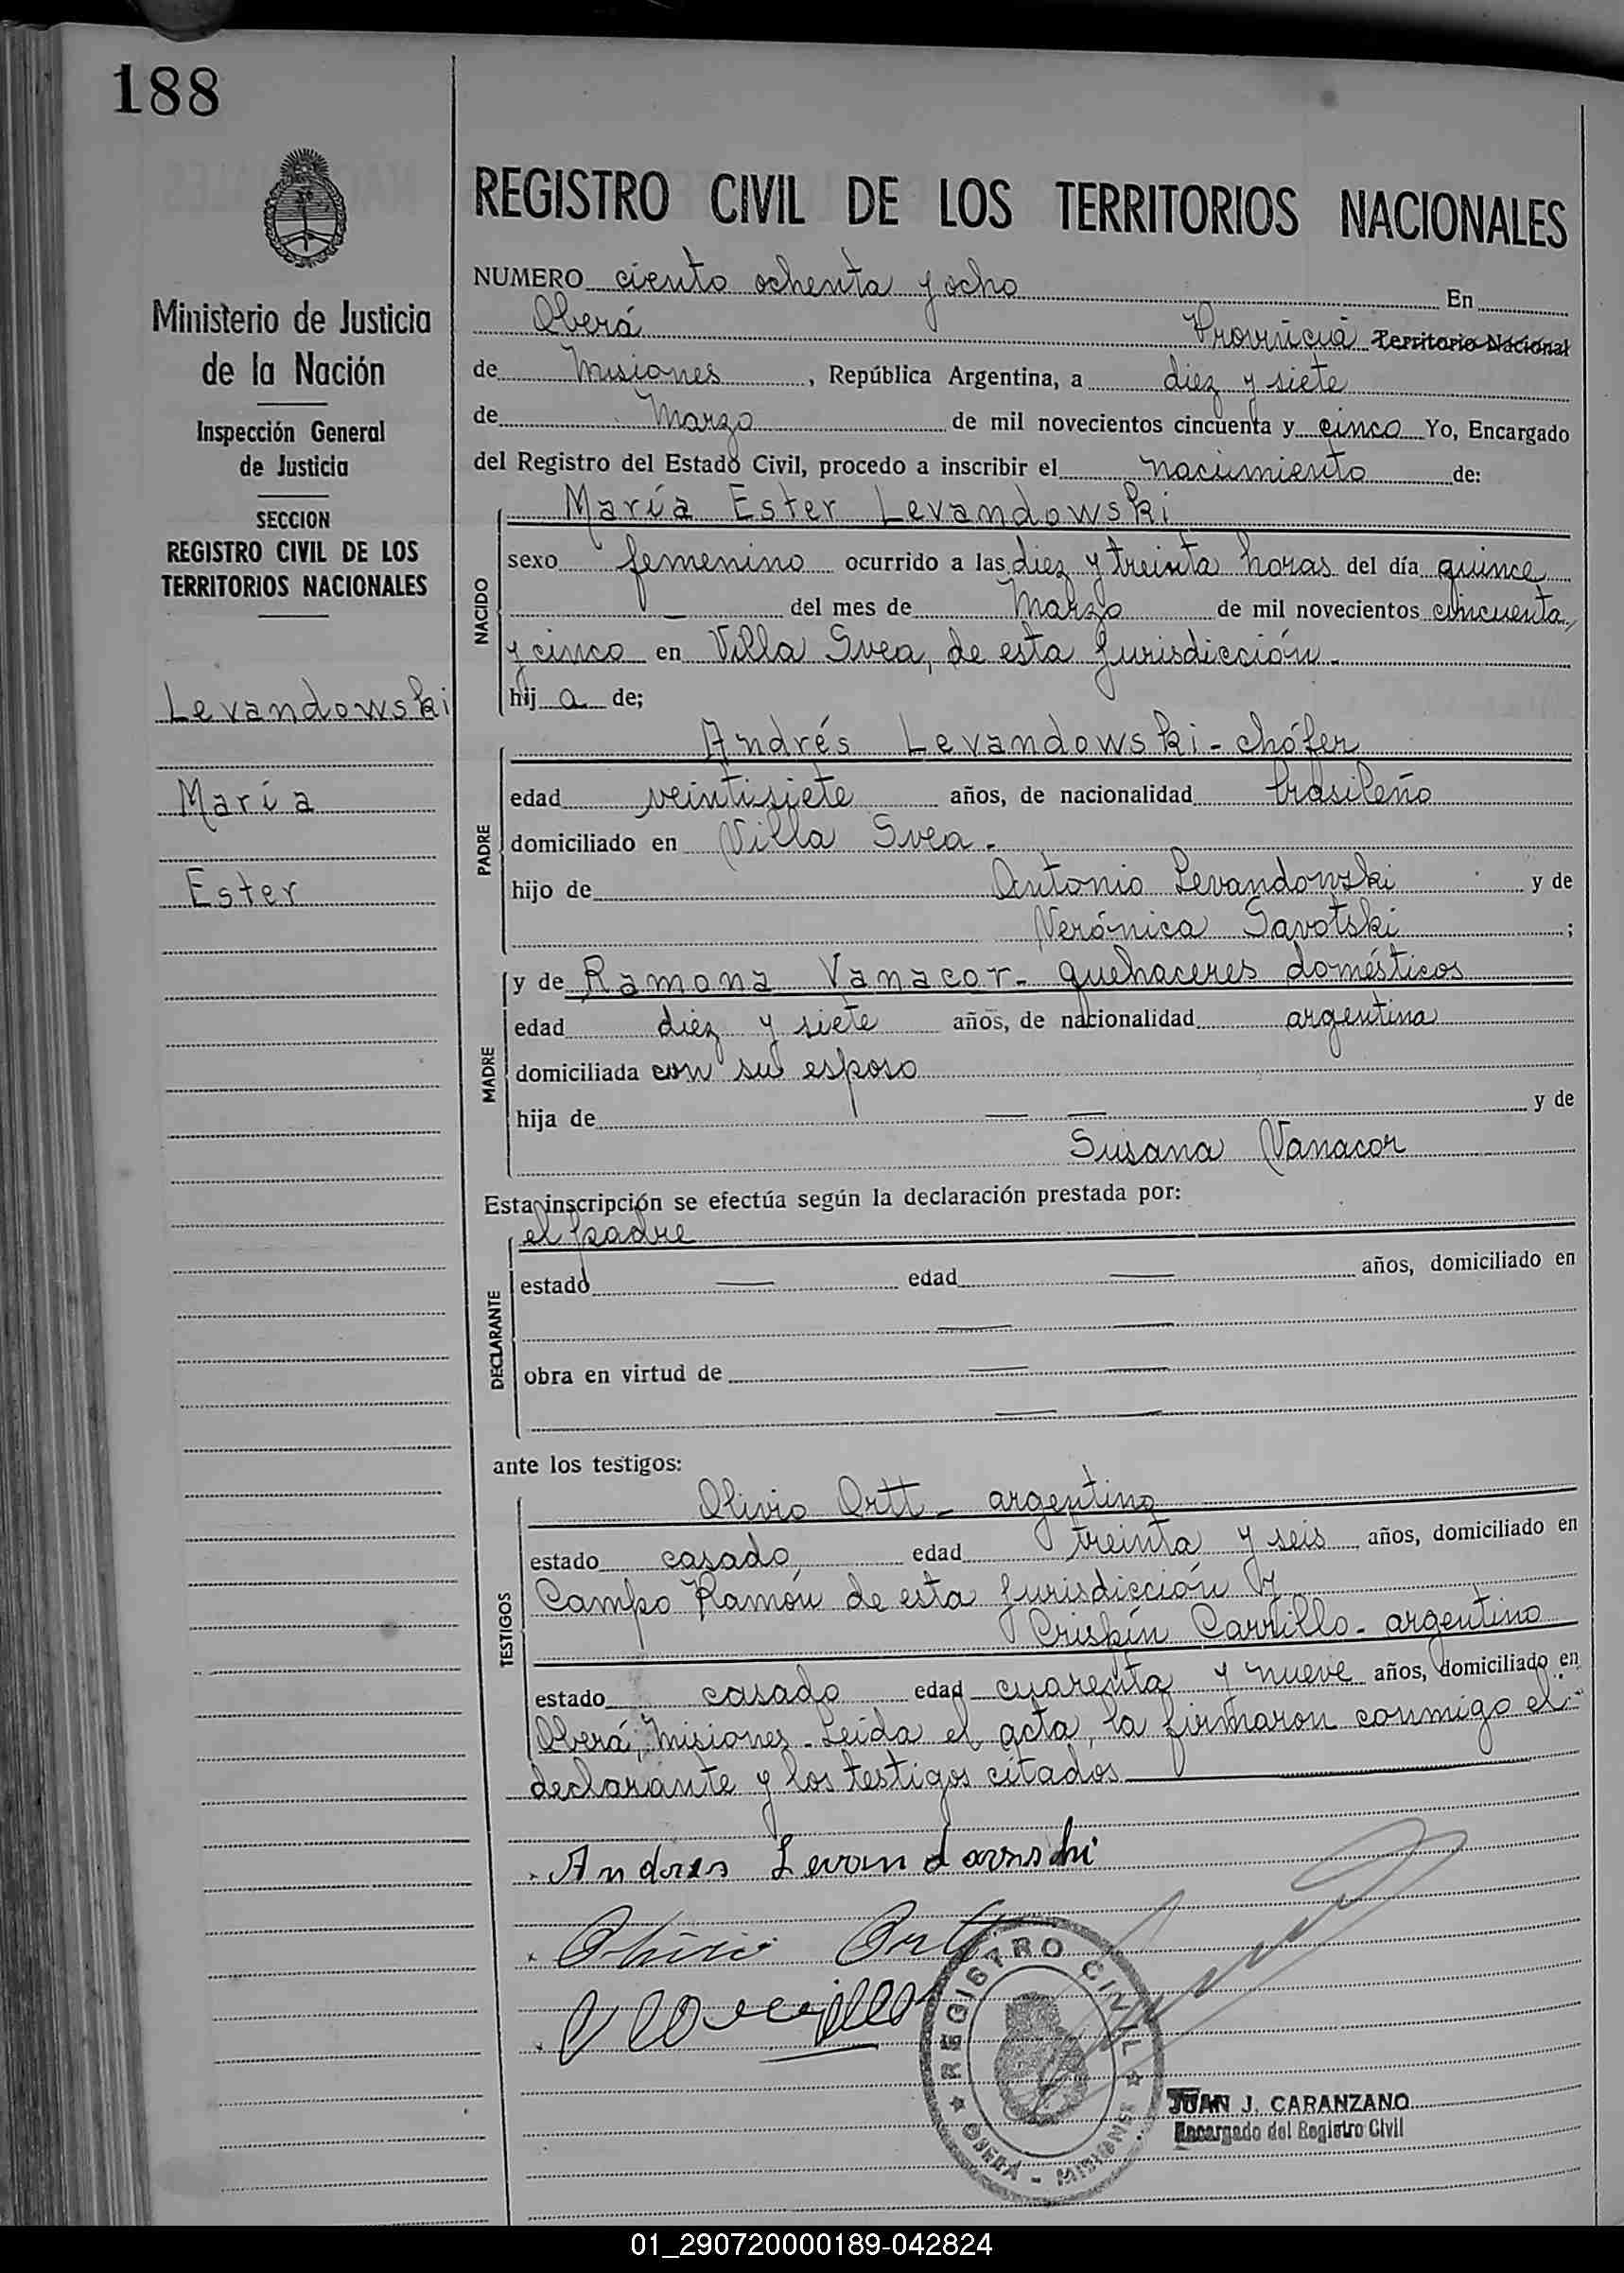 188
REGISTRO CIVIL DE LOS TERRITORIOS NACIONALES
Ministerio de Justicia
de la Nación
Inspección General
de Justicia
SECCION
REGISTRO CIVIL DE LOS
TERRITORIOS NACIONALES
Levandowski
María
Ester
NUMERO ciento ochenta y ocho En
Oberá Provincia Territorio Nacional
de Misiones, República Argentina, a diez y siete
de Marzo de mil novecientos cincuenta y cinco Yo, Encargado
del Registro del Estado Civil, procedo a inscribir el nacimiento de:
María Ester Levandowski
NACIDO
sexo femenino ocurrido a las diez y treinta horas del día quince
del mes de Marzo de mil novecientos cincuenta
y cinco en Villa Svea, de esta jurisdicción.
hij a de;
Andrés Levandowski - chófer
PADRE
edad veintisiete años, de nacionalidad brasileño
domiciliado en Villa Svea.
hijo de Antonio Levandowski y de
Verónica Savotski ;
y de Ramona Vanacor - quehaceres domésticos
MADRE
edad diez y siete años, de nacionalidad argentina
domiciliada con su esposo
hija de — — y de
Susana Vanacor
Esta inscripción se efectúa según la declaración prestada por:
el padre
DECLARANTE
estado — edad — años, domiciliado en
— —
obra en virtud de — —
— —
ante los testigos:
Olivio Ortt - argentino
TESTIGOS
estado casado edad treinta y seis años, domiciliado en
Campo Ramón de esta jurisdicción y
Crispín Carrillo - argentino
estado casado edad cuarenta y nueve años, domiciliado en
Oberá, Misiones. Leida el acta, la firmaron conmigo el
declarante y los testigos citados
Andres Levandowski
Olivio Ortt
REGISTRO CIVIL
OBERÁ - MISIONES
JUAN J. CARANZANO
Encargado del Registro Civil
01_290720000189-042824